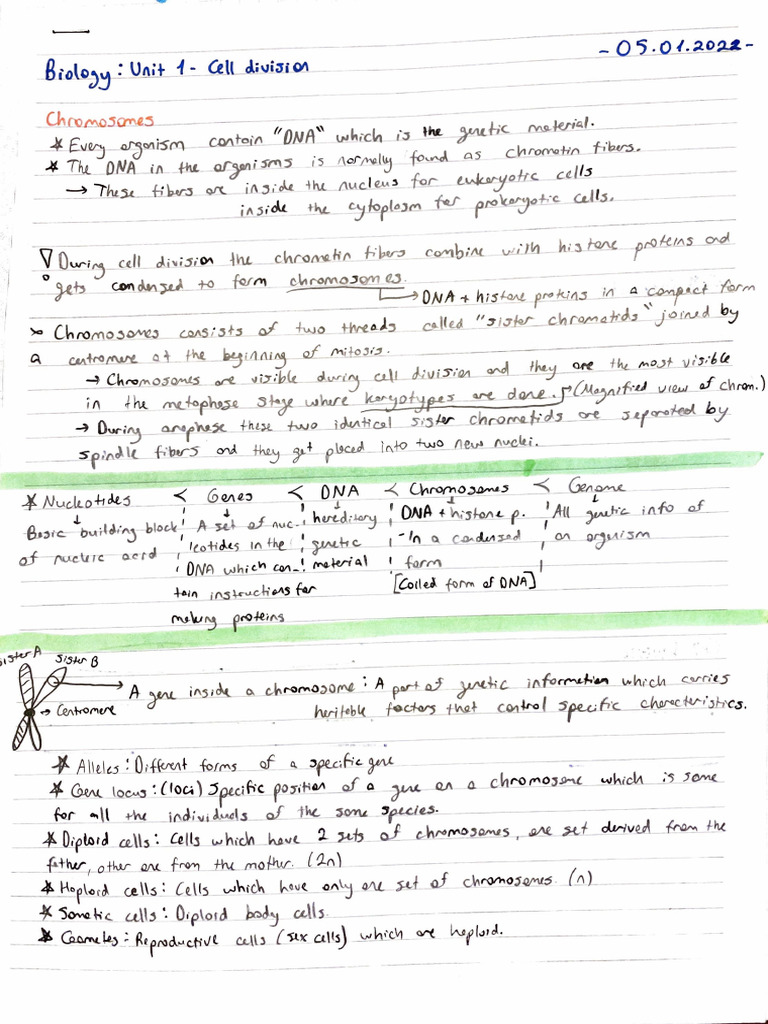 - 05.01.2022 -
Biology : Unit 1 - Cell division
Chromosomes
* Every organism contain "DNA" which is the genetic material.
* The DNA in the organisms is normally found as chromatin fibers.
→ These fibers are inside the nucleus for eukaryotic cells
inside the cytoplasm for prokaryotic cells.
During cell division the chromatin fibers combine with histone proteins and
gets condensed to form chromosomes.
→ DNA + histone proteins in a compact form
Chromosomes consists of two threads called "sister chromatids" joined by
a centromere at the beginning of mitosis.
→ Chromosomes are visible during cell division and they are the most visible
in the metaphase stage where karyotypes are done. (Magnified view of chrom.)
→ During anaphase these two identical sister chromatids are separated by
spindle fibers and they get placed into two new nuclei.
* Nucleotides < Genes < DNA < Chromosomes < Genome
Basic building block A set of nuc- hereditary DNA + histone p. All genetic info of
of nucleic acid leotides in the genetic - In a condensed an organism
DNA which con- material form
tain instructions for [Coiled form of DNA]
making proteins
Sister A Sister B
→ A gene inside a chromosome : A part of genetic information which carries
→ Centromere heritable factors that control specific characteristics.
* Alleles : Different forms of a specific gene
* Gene locus : (loci) Specific position of a gene on a chromosome which is same
for all the individuals of the same species.
* Diploid cells : Cells which have 2 sets of chromosomes, one set derived from the
father, other one from the mother. (2n)
* Haploid cells : Cells which have only one set of chromosomes. (n)
* Somatic cells : Diploid body cells.
* Gametes : Reproductive cells (sex cells) which are haploid.